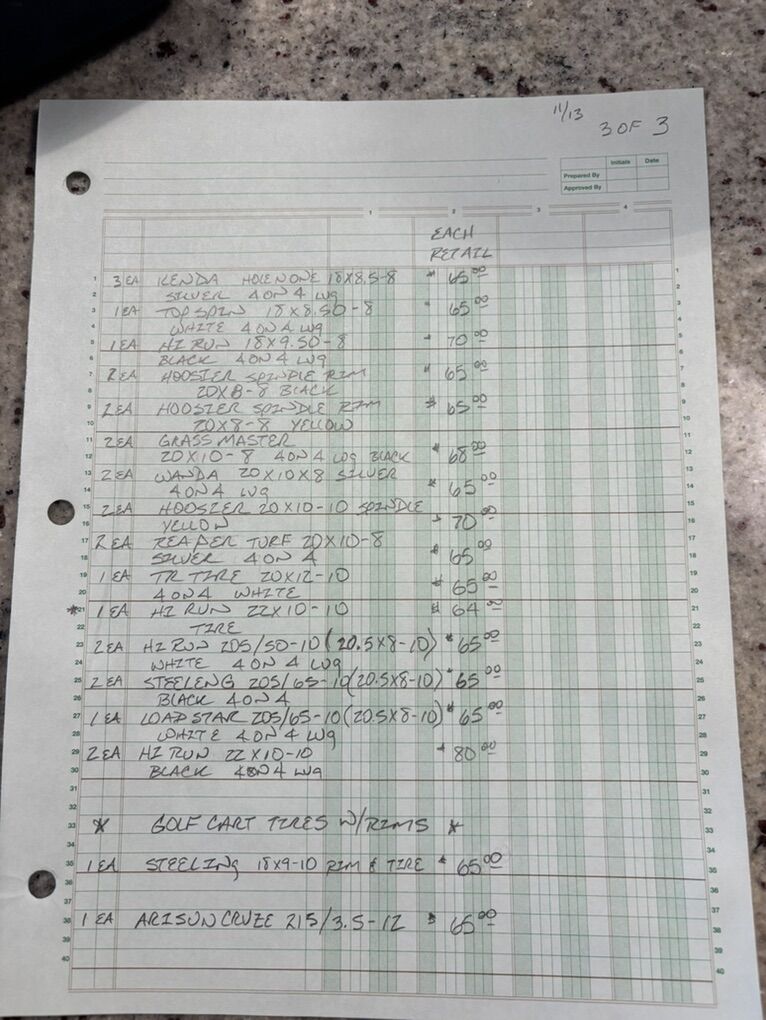 11/13
3 OF 3
Initials Date
Prepared By
Approved By
1 2 3 4
EACH
RETAIL
1 3 EA KENDA HOLE N ONE 18X8.5-8 $ 65.00 1
2 SILVER 4 ON 4 LUG 2
3 1 EA TOP SPIN 18X8.50-8 " 65.00 3
4 WHITE 4 ON 4 LUG 4
5 1 EA HI RUN 18X9.50-8 " 70.00 5
6 BLACK 4 ON 4 LUG 6
7 2 EA HOOSIER SPINDLE RIM " 65.00 7
8 20X8-8 BLACK 8
9 2 EA HOOSIER SPINDLE RIM $ 65.00 9
10 20X8-8 YELLOW 10
11 2 EA GRASS MASTER 11
12 20X10-8 4 ON 4 LUG BLACK $ 68.00 12
13 2 EA WANDA 20X10X8 SILVER 13
14 4 ON 4 LUG $ 65.00 14
15 2 EA HOOSIER 20X10-10 SPINDLE 15
16 YELLOW $ 70.00 16
17 2 EA REAPER TURF 20X10-8 17
18 SILVER 4 ON 4 $ 65.00 18
19 1 EA TR TIRE 20X12-10 19
20 4 ON 4 WHITE $ 65.00 20
*21 1 EA HI RUN 22X10-10 $ 64.00 21
22 TIRE 22
23 2 EA HI RUN 205/50-10 (20.5X8-10) $ 65.00 23
24 WHITE 4 ON 4 LUG 24
25 2 EA STEELENG 205/65-10 (20.5X8-10) $ 65.00 25
26 BLACK 4 ON 4 26
27 1 EA LOADSTAR 205/65-10 (20.5X8-10) $ 65.00 27
28 WHITE 4 ON 4 LUG 28
29 2 EA HI RUN 22X10-10 $ 80.00 29
30 BLACK 4 ON 4 LUG 30
31 31
32 32
33 * GOLF CART TIRES W/RIMS * 33
35 1 EA STEELING 18X9-10 RIM & TIRE $ 65.00 35
36 36
37 37
38 1 EA ARISUN CRUZE 215/3.5-12 $ 65.00 38
39 39
40 40